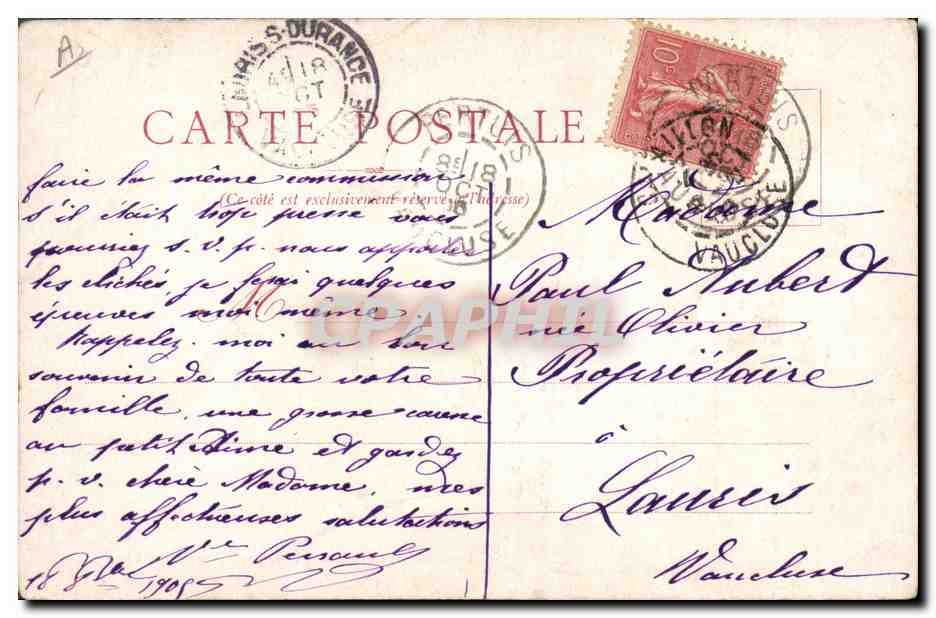 A2
LAURIS S-DURANCE
18
OCT
VAUCLUSE
PERTUIS
8E 18
OCT
VAUCLUSE
10c
PERTUIS
CAVAILLON
OCT
VAUCLUSE
CARTE POSTALE
(Ce côté est exclusivement réservé à l'adresse)
faire la même commission
s'il était trop pressé vous
pourriez s. v. p. nous apporter
les clichés, je ferai quelques
épreuves moi même.
Rappelez-moi au bon
souvenir de toute votre
famille, une grosse caresse
au petit Aimé et gardez
p. v. chère Madame, mes
plus affectueuses salutations
Vve
18 8bre 1905
Madame
Paul Aubert
née Olivier
Propriétaire
à
Lauris
Vaucluse
CPAPHIL